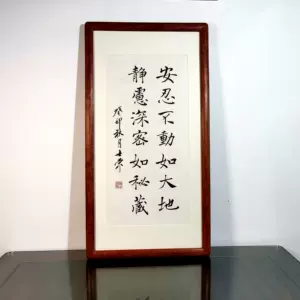 安忍不動如大地
靜慮深密如秘藏
癸卯秋月